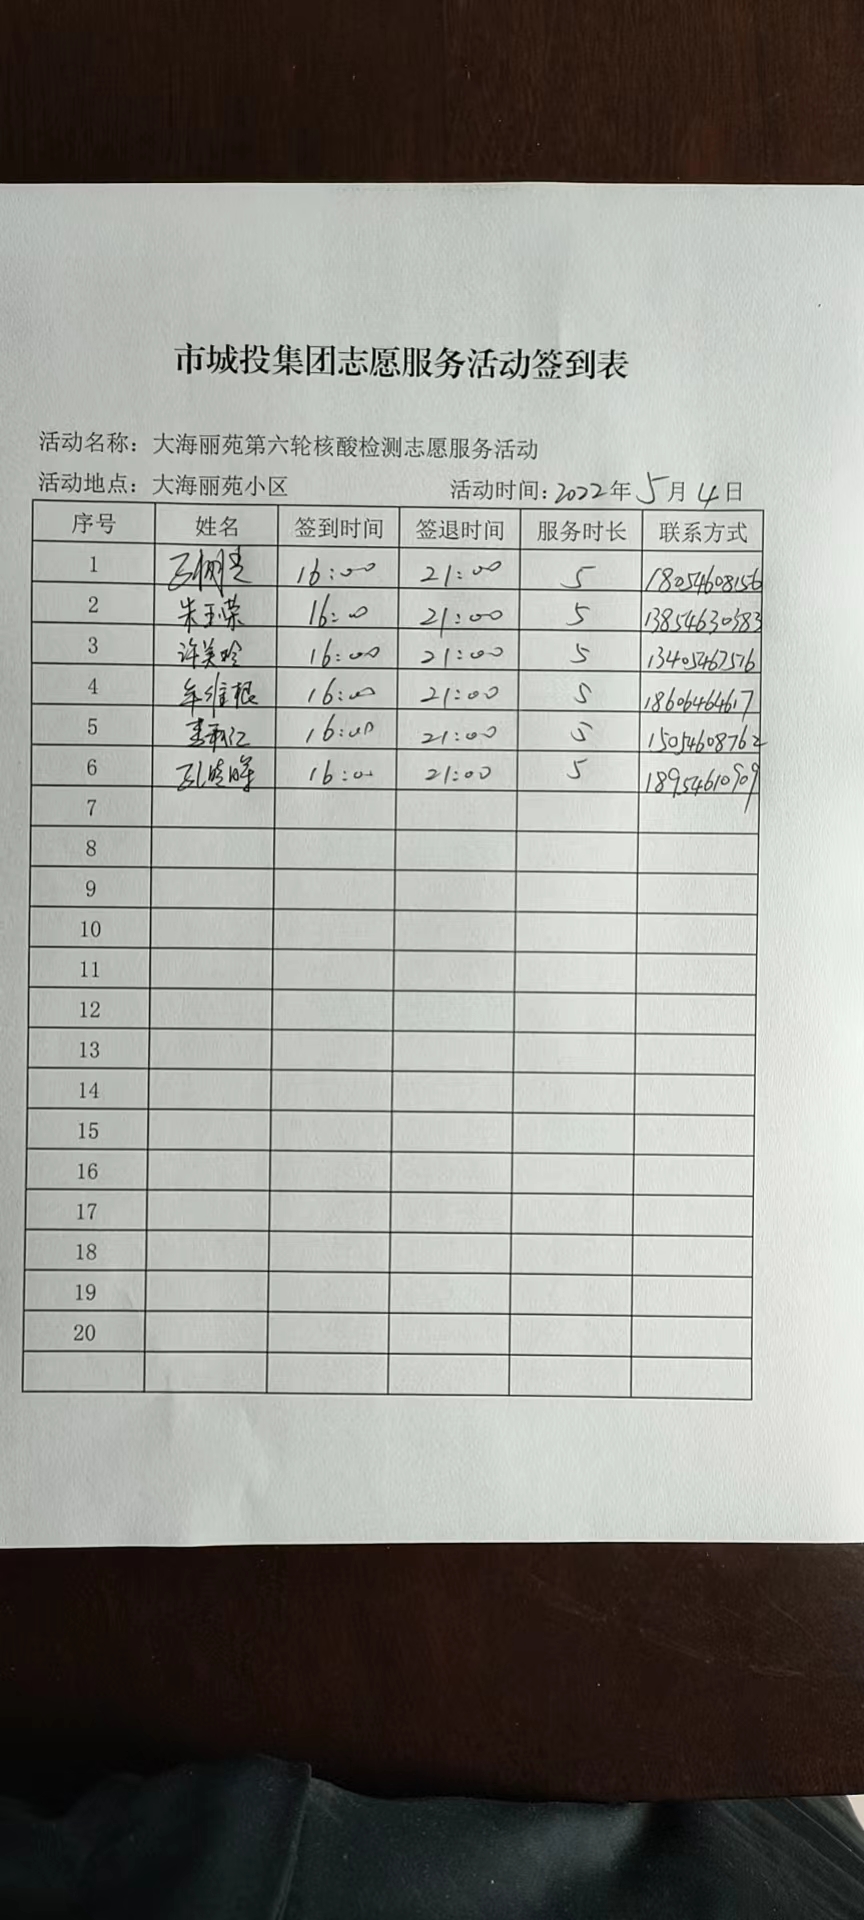 市城投集团志愿服务活动签到表
活动名称：大海丽苑第六轮核酸检测志愿服务活动
活动地点：大海丽苑小区 活动时间：2022年5月4日
序号 姓名 签到时间 签退时间 服务时长 联系方式
1 16:00 21:00 5 18054608156
2 朱玉荣 16:00 21:00 5 13854630383
3 许美玲 16:00 21:00 5 13405467576
4 牟维根 16:00 21:00 5 18606464617
5 16:00 21:00 5 15054608762
6 孔晓晖 16:00 21:00 5 18954610909
7
8
9
10
11
12
13
14
15
16
17
18
19
20